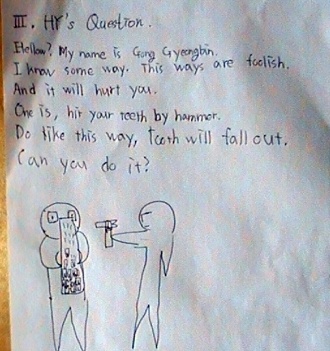 III. HY's Question.
Hellow? My name is Gong Gyeongbin.
I know some way. This ways are foolish.
And it will hurt you.
One is, hit your teeth by hammer.
Do like this way, tooth will fall out.
Can you do it?